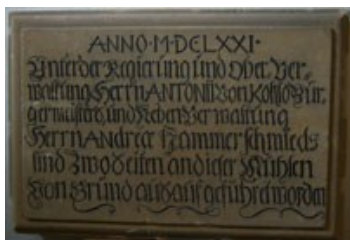 ANNO·M·DCLXXI·
Unter der Regierung und Ober-Ver-
waltung Herrn ANTONII von Kohlo Bür-
germeisters, und Neben Verwaltung
Herrn ANdreæ Hammerschmieds
sind zwo Seiten an dieser Mühlen
Von Grund aus auf geführet worden